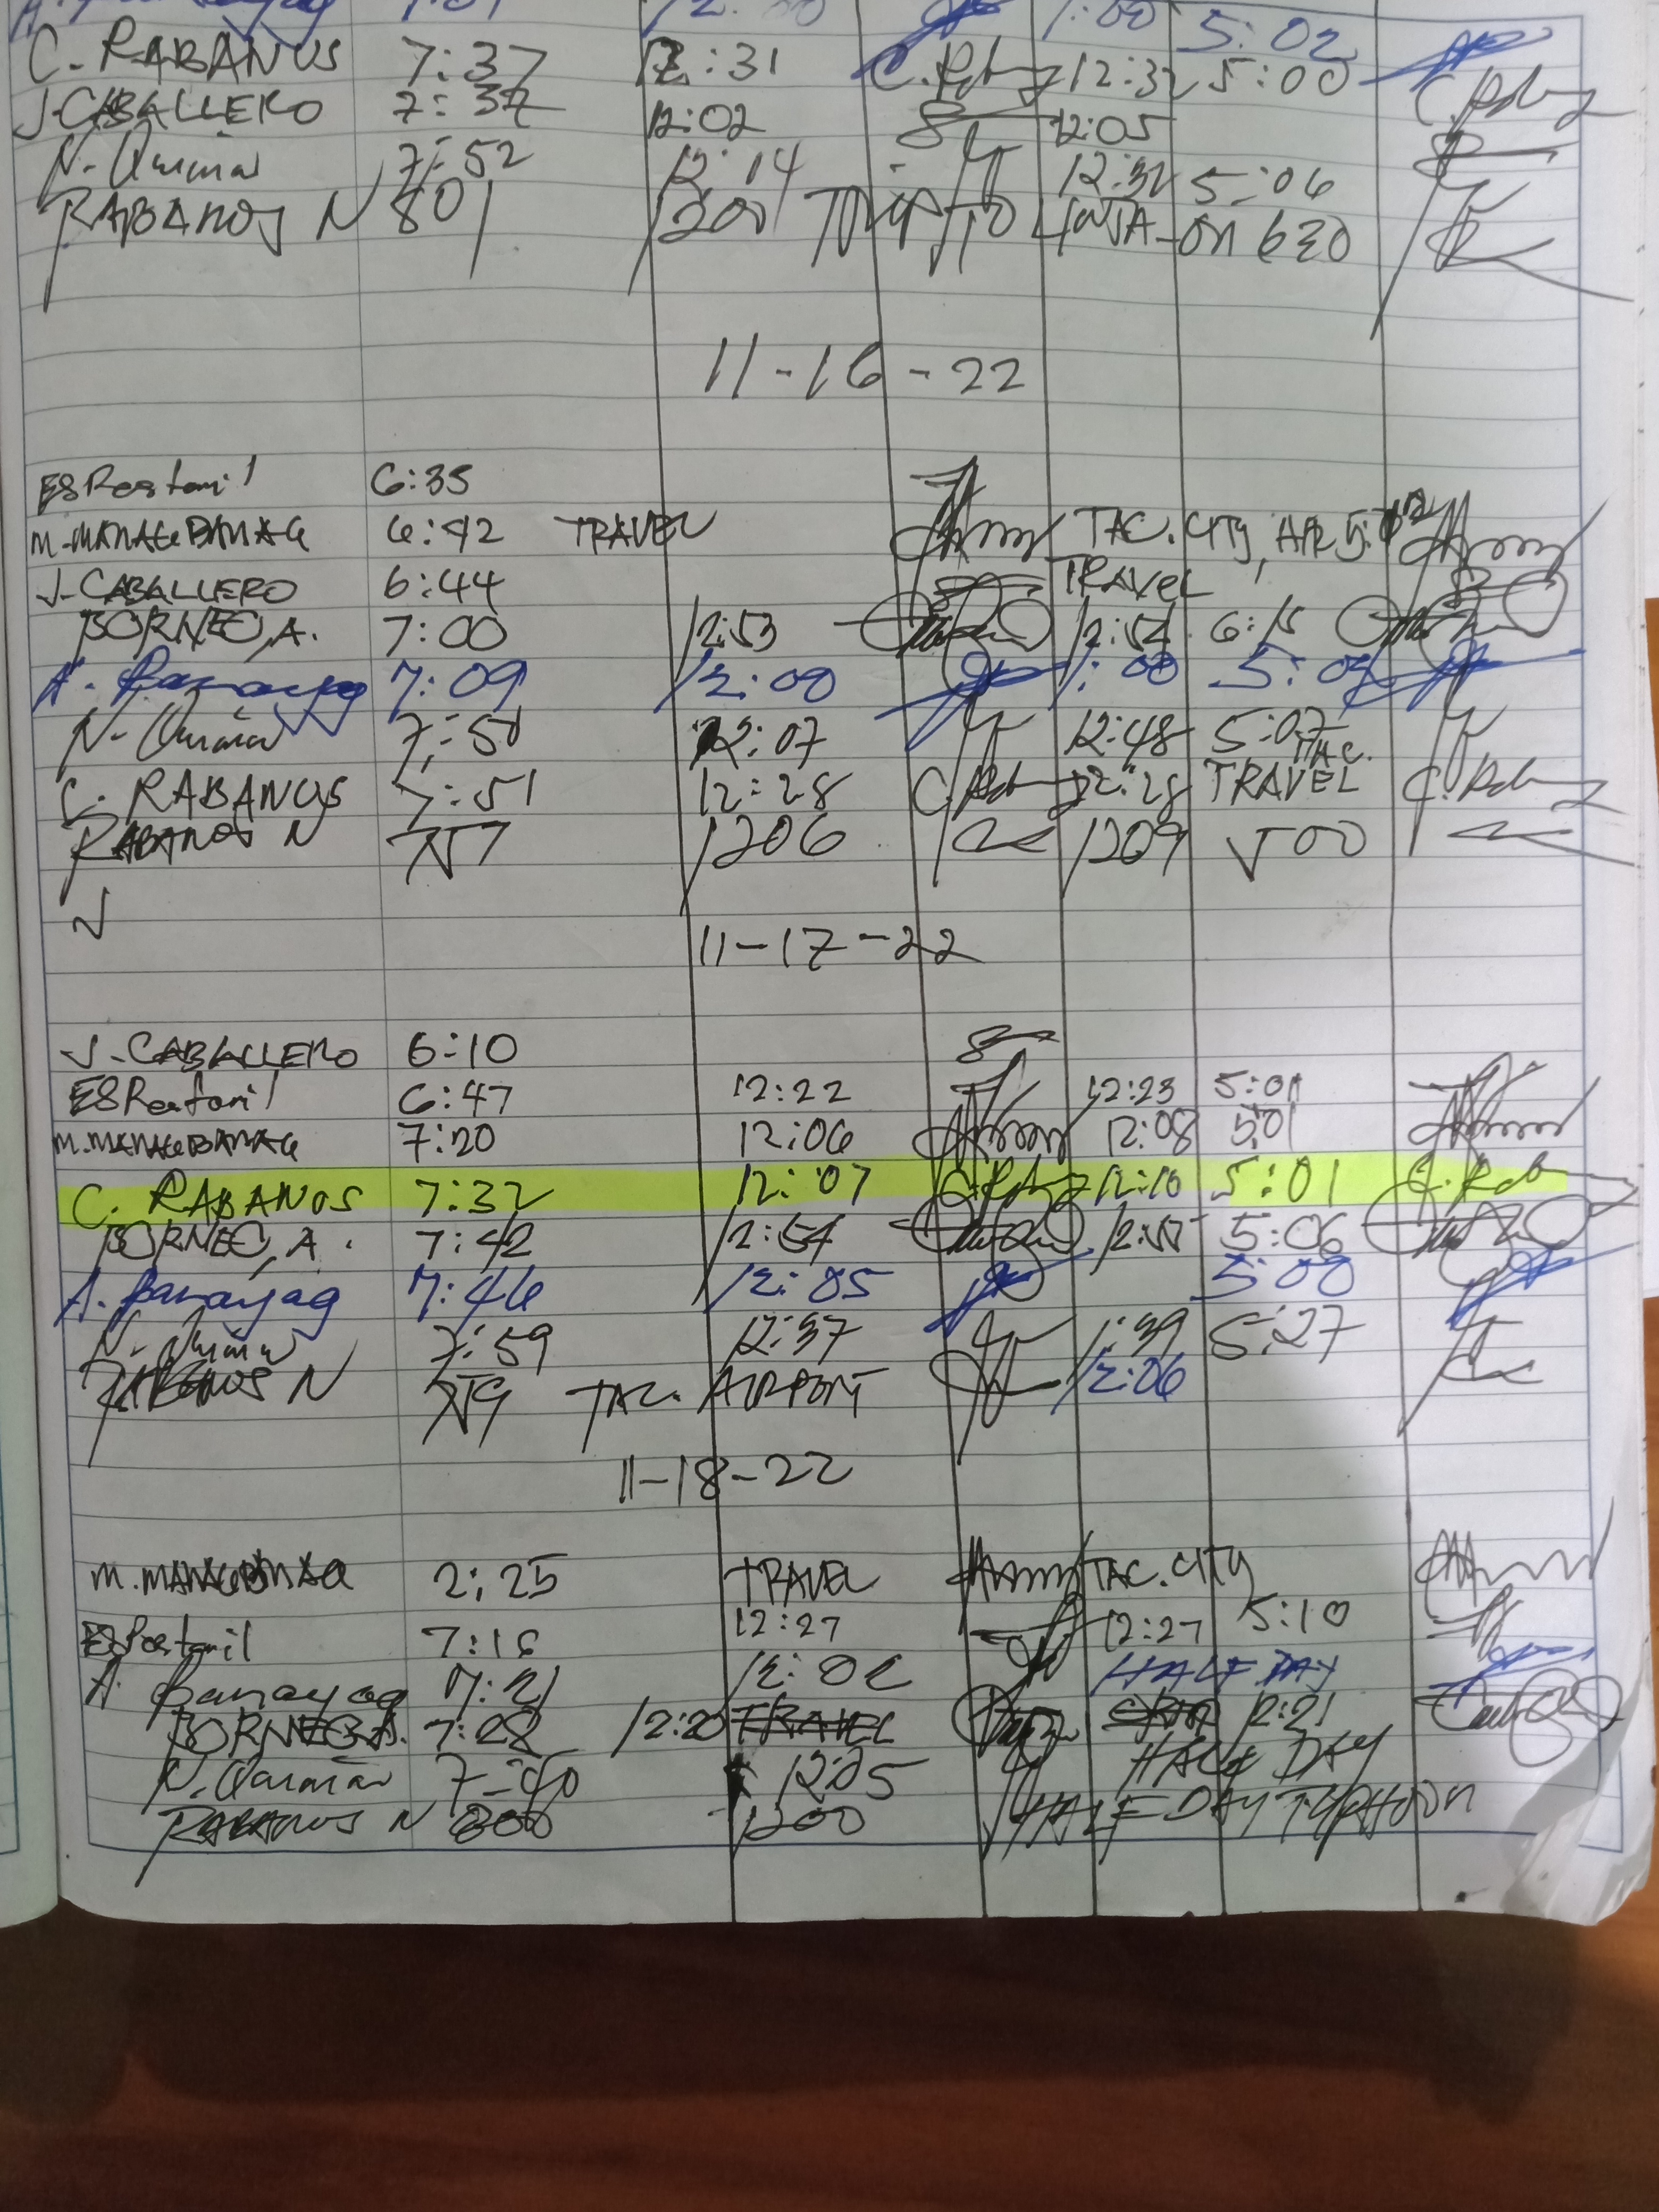 12:00 1:00 5:02
C. RABANOS 7:37 12:31 12:32 5:00
J. CABALLERO 7:37 12:02 12:05
N. 7:52 12:14 12:32 5:06
RABANOS N 801 1200 TRIP TO 630
11-16-22
ESRestauril 6:35
M. MANAGBANAG 6:42 TRAVEL TAC. CITY,
J. CABALLERO 6:44 TRAVEL
BORNEO, A. 7:00 12:53 12:54 6:15
A. Banayag 7:09 12:00 1:00 5:02
N. 7:51 12:07 12:48 5:07
C. RABANOS 7:51 12:28 12:28 TAC. TRAVEL
RABANOS N 757 1206 1209 500
11-17-22
J. CABALLERO 6:10
ESRestauril 6:47 12:22 12:23 5:01
M. MANAGBANAG 7:20 12:06 12:08 5:01
C. RABANOS 7:32 12:07 12:10 5:01
BORNEO, A. 7:42 12:54 12:55 5:06
A. Banayag 7:46 12:05 5:00
N. 7:59 12:37 1:39 5:27
RABANOS N 759 TAC. AIRPORT 12:06
11-18-22
M. MANAGBANAG 2:25 TRAVEL TAC. CITY
7:16 12:27 12:27 5:10
A. Banayag 7:21 12:02 HALF DAY
BORNEO A. 7:28 12:20 TRAVEL 12:21
N. 7:40 12:05 HALF DAY
RABANOS N 800 1200 HALF DAY TYPHOON